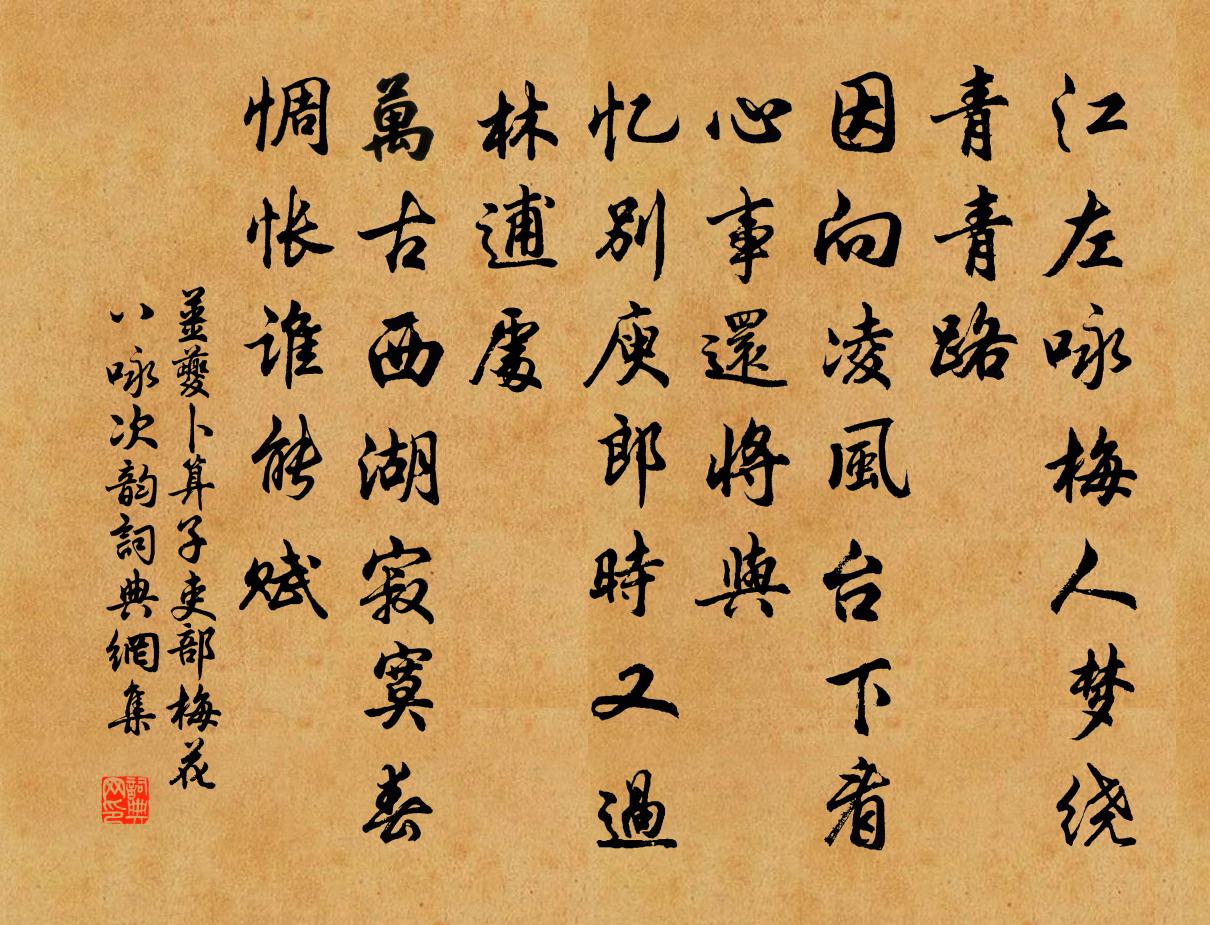 江左咏梅人梦绕
青青路
因向凌風台下看
心事還將與
忆別庾郎時又過
林逋處
萬古西湖寂寞春
惆怅谁能赋
姜夔卜算子吏部梅花
八咏次韵詞典網集
詞典
网印